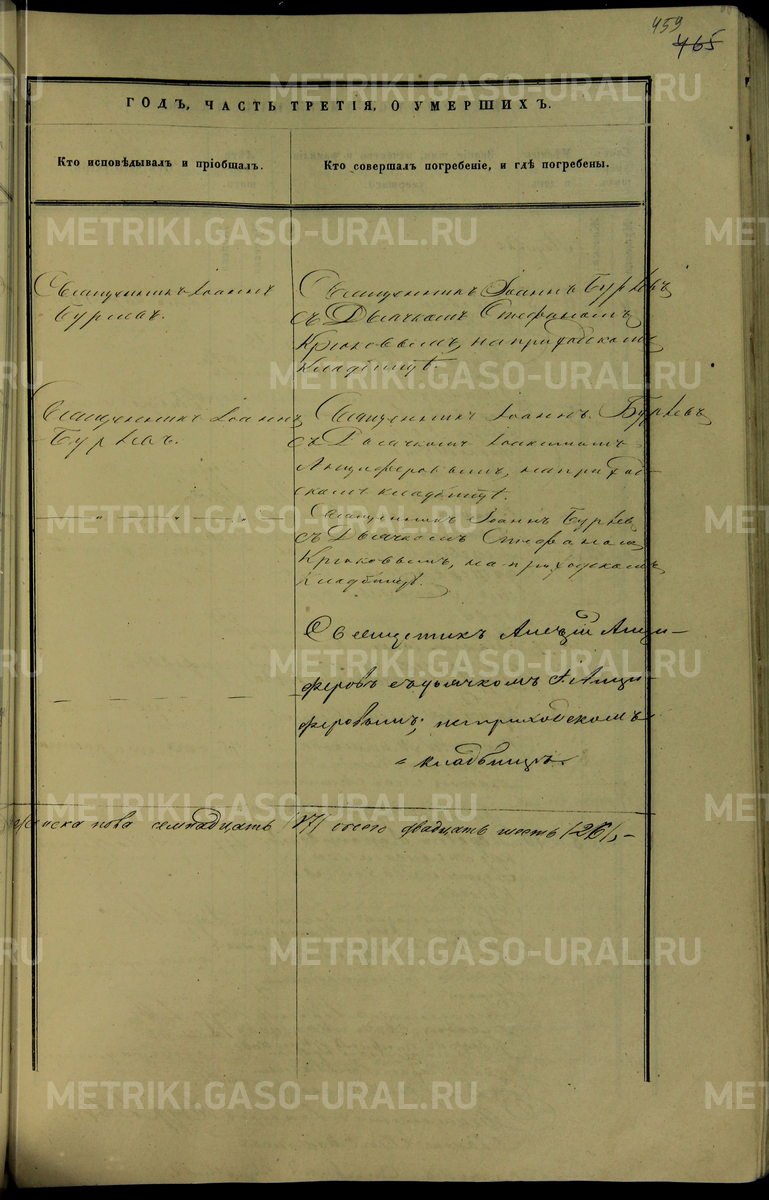 459
465
ГОДЪ, ЧАСТЬ ТРЕТІЯ, О УМЕРШИХЪ.
Кто исповѣдывалъ и пріобщалъ.
Кто совершалъ погребеніе, и гдѣ погребены.
Священникъ Іоаннъ
Бурлевъ.
Священникъ Іоаннъ Бурлевъ
съ Дьячкомъ Стефаномъ
Крюковымъ, на приходскомъ
кладбищѣ.
Священникъ Іоаннъ
Бурлевъ.
Священникъ Іоаннъ Бурлевъ
съ Дьячкомъ Іоакимомъ
Анциферовымъ, на приход-
скомъ кладбищѣ.
Священникъ Іоаннъ Бурлев
съ Дьячкомъ Стефаномъ
Крюковымъ, на приходскомъ
кладбищѣ.
Священникъ Алексій Анци-
феровъ съ дьячкомъ І. Анци-
феровымъ, на приходскомъ
кладбищѣ.
женска пола семнадцать /17/ всего двадцать шесть /26/,-
METRIKI.GASO-URAL.RU